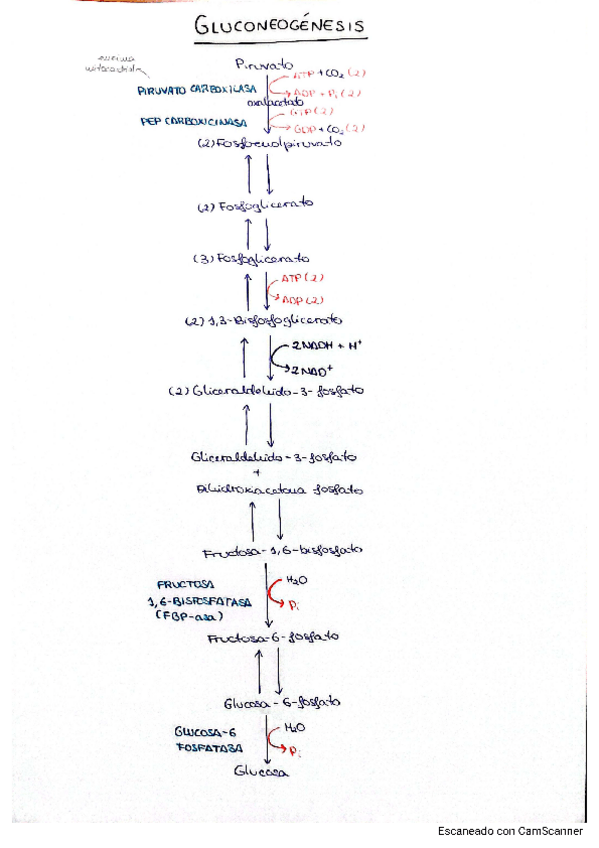 GLUCONEOGÉNESIS
enzima
mitocondrial
Piruvato
ATP + CO2 (2)
PIRUVATO CARBOXILASA
ADP + Pi (2)
oxalacetato
GTP (2)
PEP CARBOXICINASA
GDP + CO2 (2)
(2) Fosfoenolpiruvato
(2) Fosfoglicerato
(3) Fosfoglicerato
ATP (2)
ADP (2)
(2) 1,3-Bisfosfoglicerato
2NADH + H+
2NAD+
(2) Gliceraldehido-3-fosfato
Gliceraldehido-3-fosfato
+
Dihidroxiacetona fosfato
Fructosa-1,6-bisfosfato
FRUCTOSA
H2O
1,6-BISFOSFATASA
Pi
(FBP-asa)
Fructosa-6-fosfato
Glucosa-6-fosfato
GLUCOSA-6
H2O
FOSFATASA
Pi
Glucosa
Escaneado con CamScanner